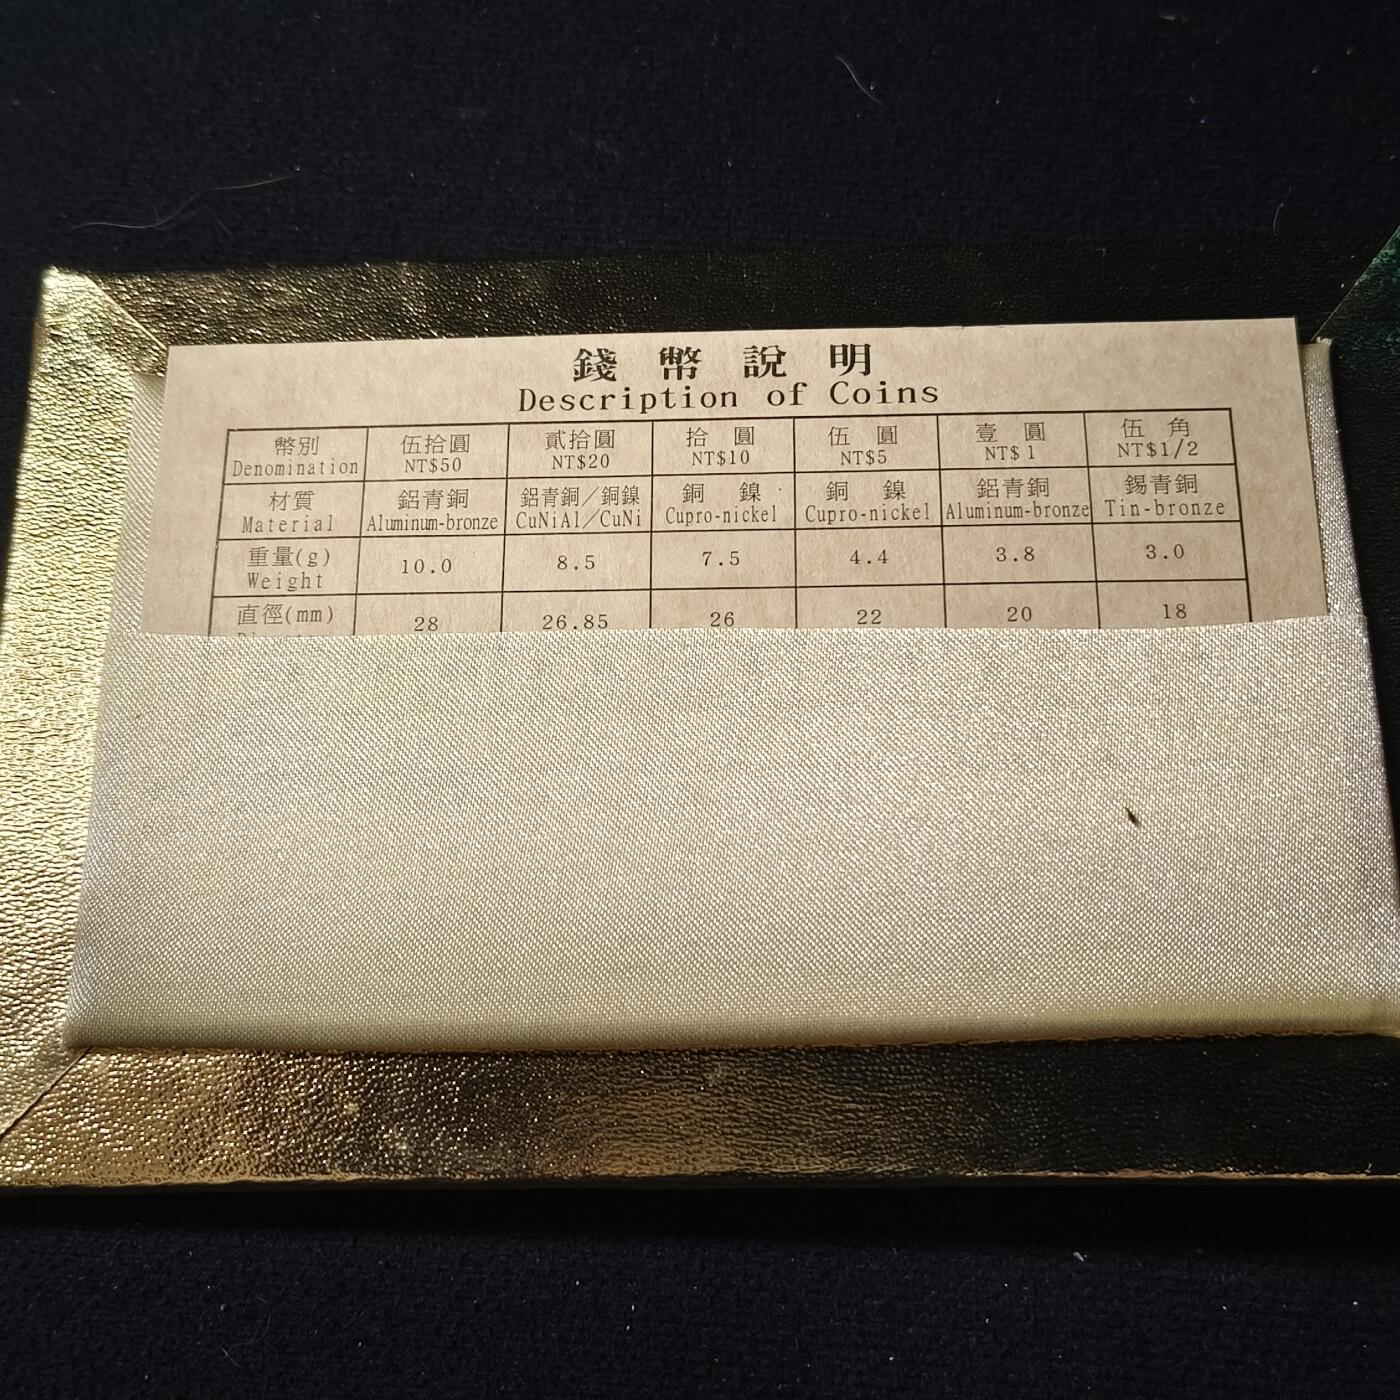 錢幣說明
Description of Coins
幣別 伍拾圓 貳拾圓 拾圓 伍圓 壹圓 伍角
Denomination NT$50 NT$20 NT$10 NT$5 NT$1 NT$1/2
材質 鋁青銅 鋁青銅/銅鎳 銅鎳 銅鎳 鋁青銅 錫青銅
Material Aluminum-bronze CuNiAl/CuNi Cupro-nickel Cupro-nickel Aluminum-bronze Tin-bronze
重量(g) 10.0 8.5 7.5 4.4 3.8 3.0
Weight
直徑(mm) 28 26.85 26 22 20 18